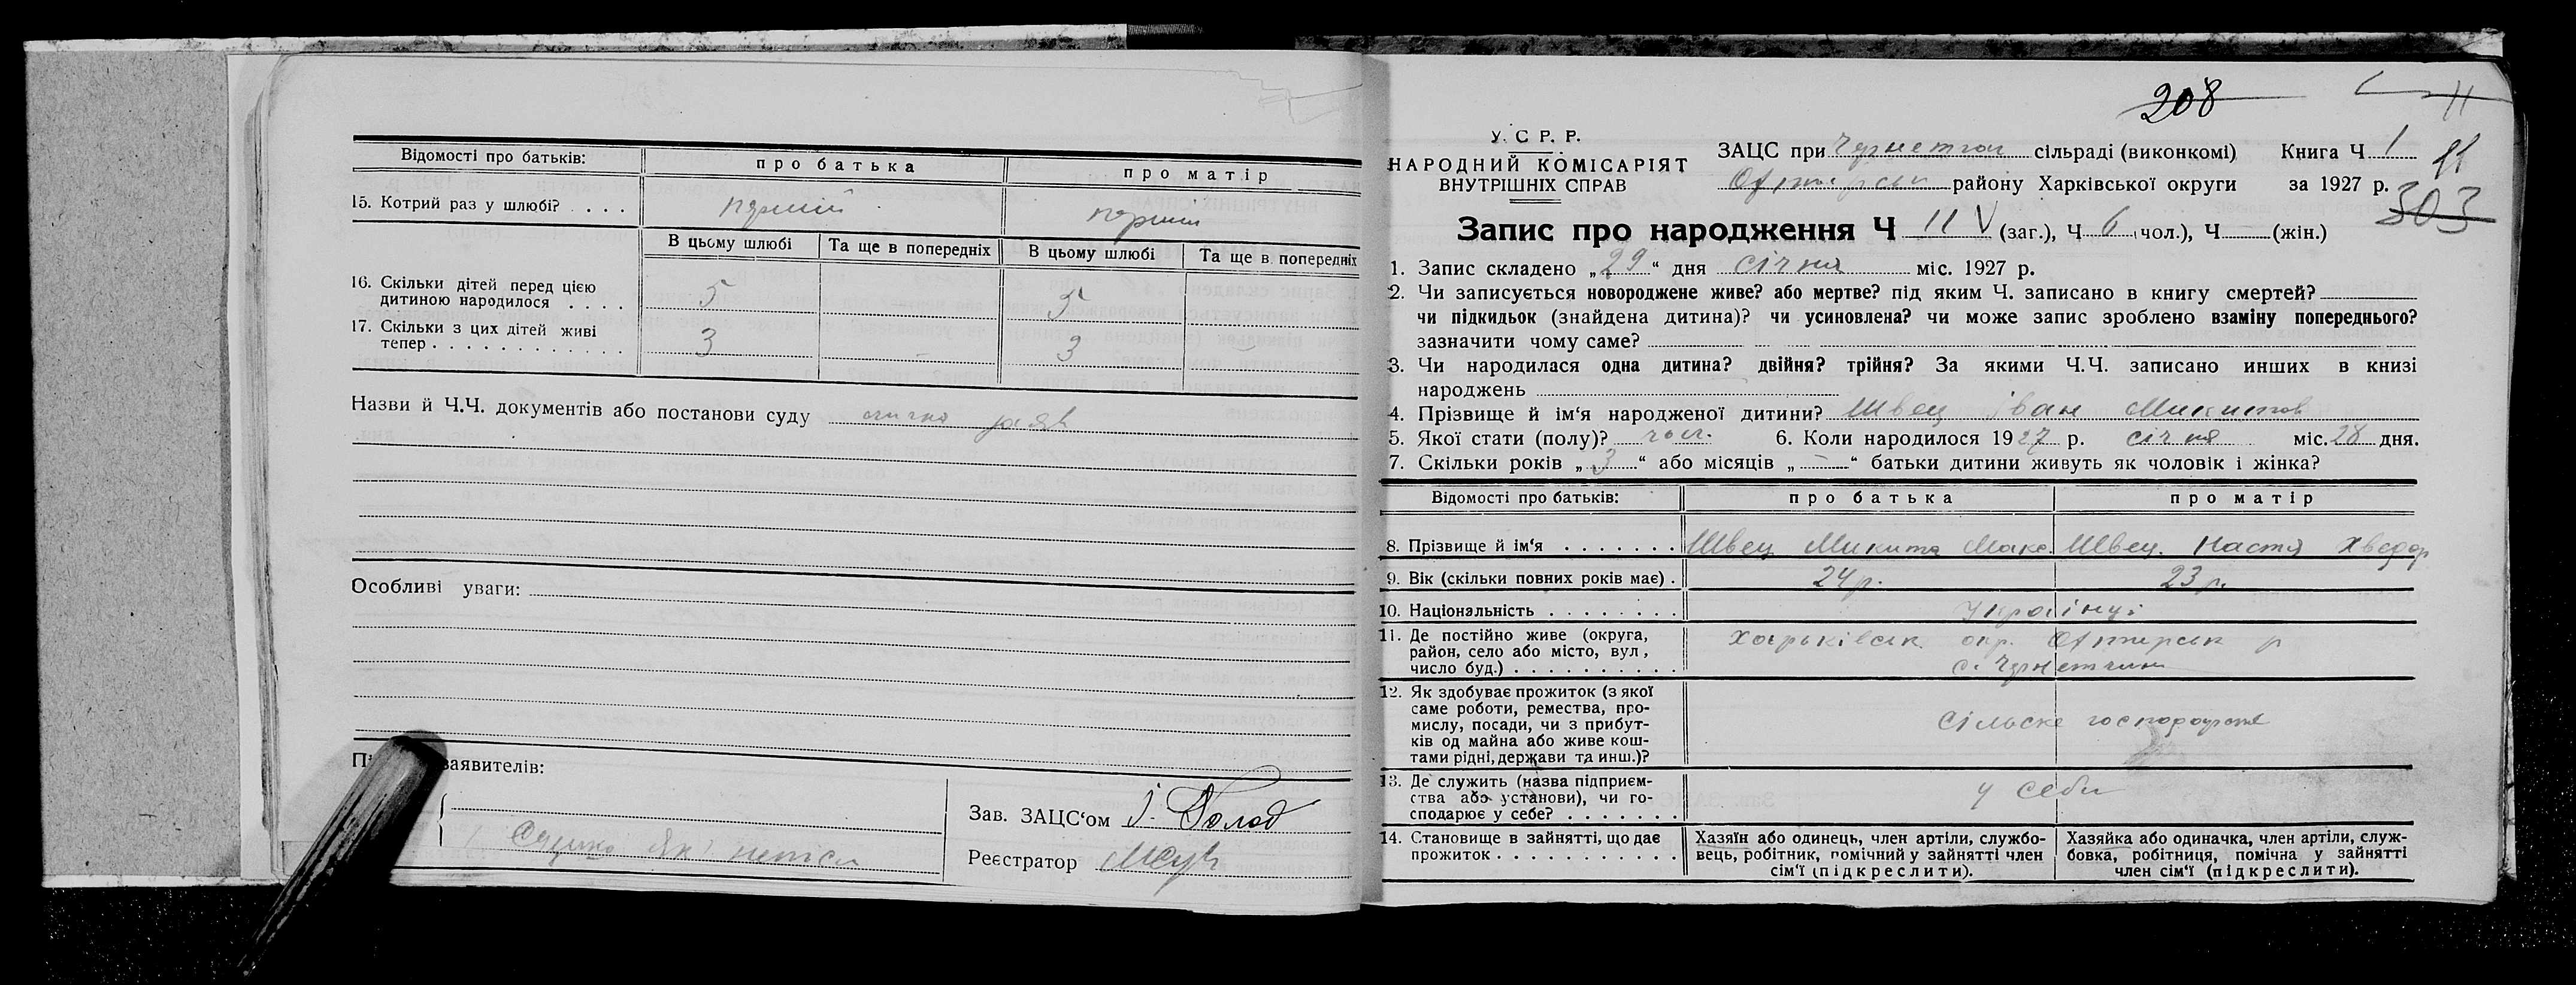 Відомості про батьків: про батька про матір
15. Котрий раз у шлюбі? . . . . перший перший
В цьому шлюбі Та ще в попередніх В цьому шлюбі Та ще в попередніх
16. Скільки дітей перед цією
дитиною народилося . . . . 5 5
17. Скільки з цих дітей живі
тепер . . . . . . . . . . . . 3 – 3 –
Назви й Ч.Ч. документів або постанови суду
Особливі уваги:
заявителів:
Зав. ЗАЦС‘ом
Реєстратор
208
11
У. С. Р. Р.
НАРОДНИЙ КОМІСАРІЯТ
ВНУТРІШНІХ СПРАВ
ЗАЦС при сільраді (виконкомі) Книга Ч 1
району Харківської округи за 1927 р.
11
303
Запис про народження Ч 11 V (заг.), Ч 6 (чол.), Ч (жін.)
1. Запис складено „29“ дня січня міс. 1927 р.
2. Чи записується новороджене живе? або мертве? під яким Ч. записано в книгу смертей?
чи підкидьок (знайдена дитина)? чи усиновлена? чи може запис зроблено взаміну попереднього?
зазначити чому саме?
3. Чи народилася одна дитина? двійня? трійня? За якими Ч.Ч. записано инших в книзі
народжень
4. Прізвище й ім‘я народженої дитини? Швец Іван Микитов
5. Якої стати (полу)? чол. 6. Коли народилося 1927 р. січня міс. 28 дня.
7. Скільки років „3“ або місяців „–“ батьки дитини живуть як чоловік і жінка?
Відомості про батьків: про батька про матір
8. Прізвище й ім‘я . . . . . . . Швец Микита Макс. Швец Настя Хведор
9. Вік (скільки повних років має) . 24 р. 23 р.
10. Національність . . . . . . . . Українці
11. Де постійно живе (округа,
район, село або місто, вул,
число буд.) . . . . . . . . . . Харьківськ окр. Охтирськ р
12. Як здобуває прожиток (з якої
саме роботи, ремества, про-
мислу, посади, чи з прибут-
ків од майна або живе кош-
тами рідні, держави та инш.)?
Сільске господарстві
13. Де служить (назва підприєм-
ства або установи), чи го-
сподарює у себе? . . . . . . . у себи
14. Становище в зайнятті, що дає
прожиток . . . . . . . . . . .
Хазяїн або одинець, член артіли, службо-
вець, робітник, помічний у зайнятті член
сім‘ї (підкреслити).
Хазяйка або одиначка, член артіли, служ-
бовка, робітниця, помічна у зайнятті
член сім‘ї (підкреслити).